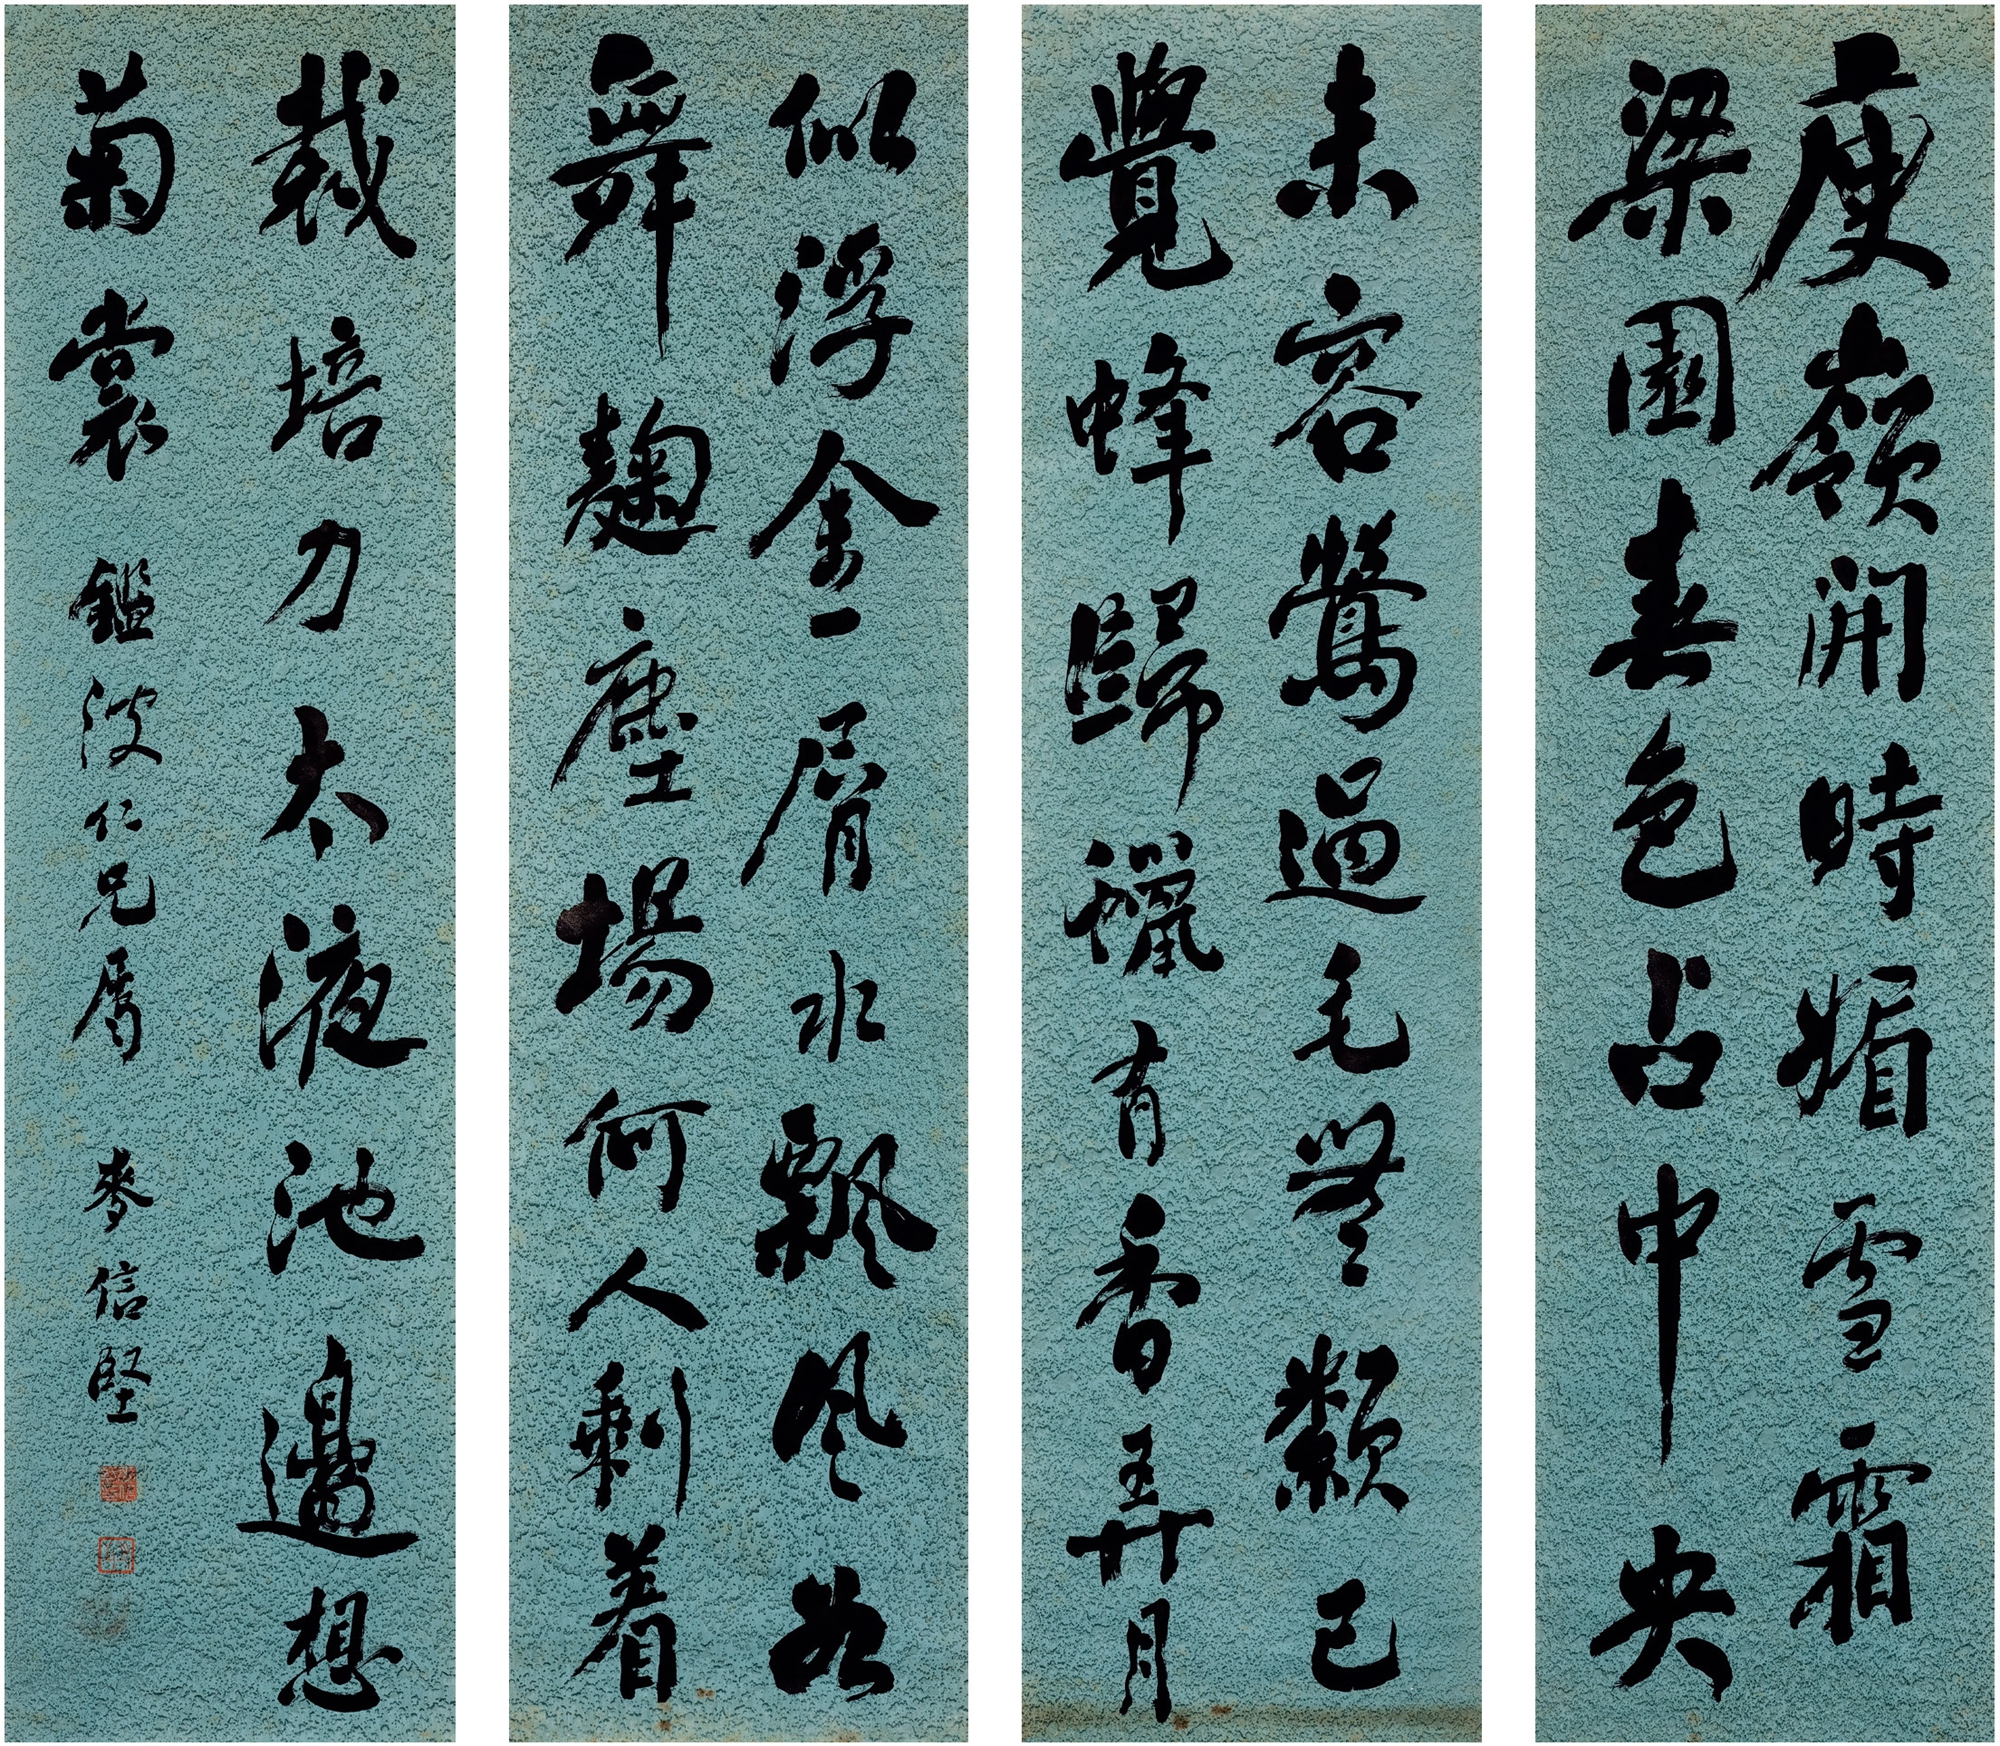 庾嶺開時媚雪霜
梁園春色占中央
未容鶯過毛無類已
覺蜂歸蠟有香弄月
似浮金屑水飄風如
舞麴塵場何人剩着
裁培力太液池邊想
菊裳 鑑波仁兄属 麥信堅